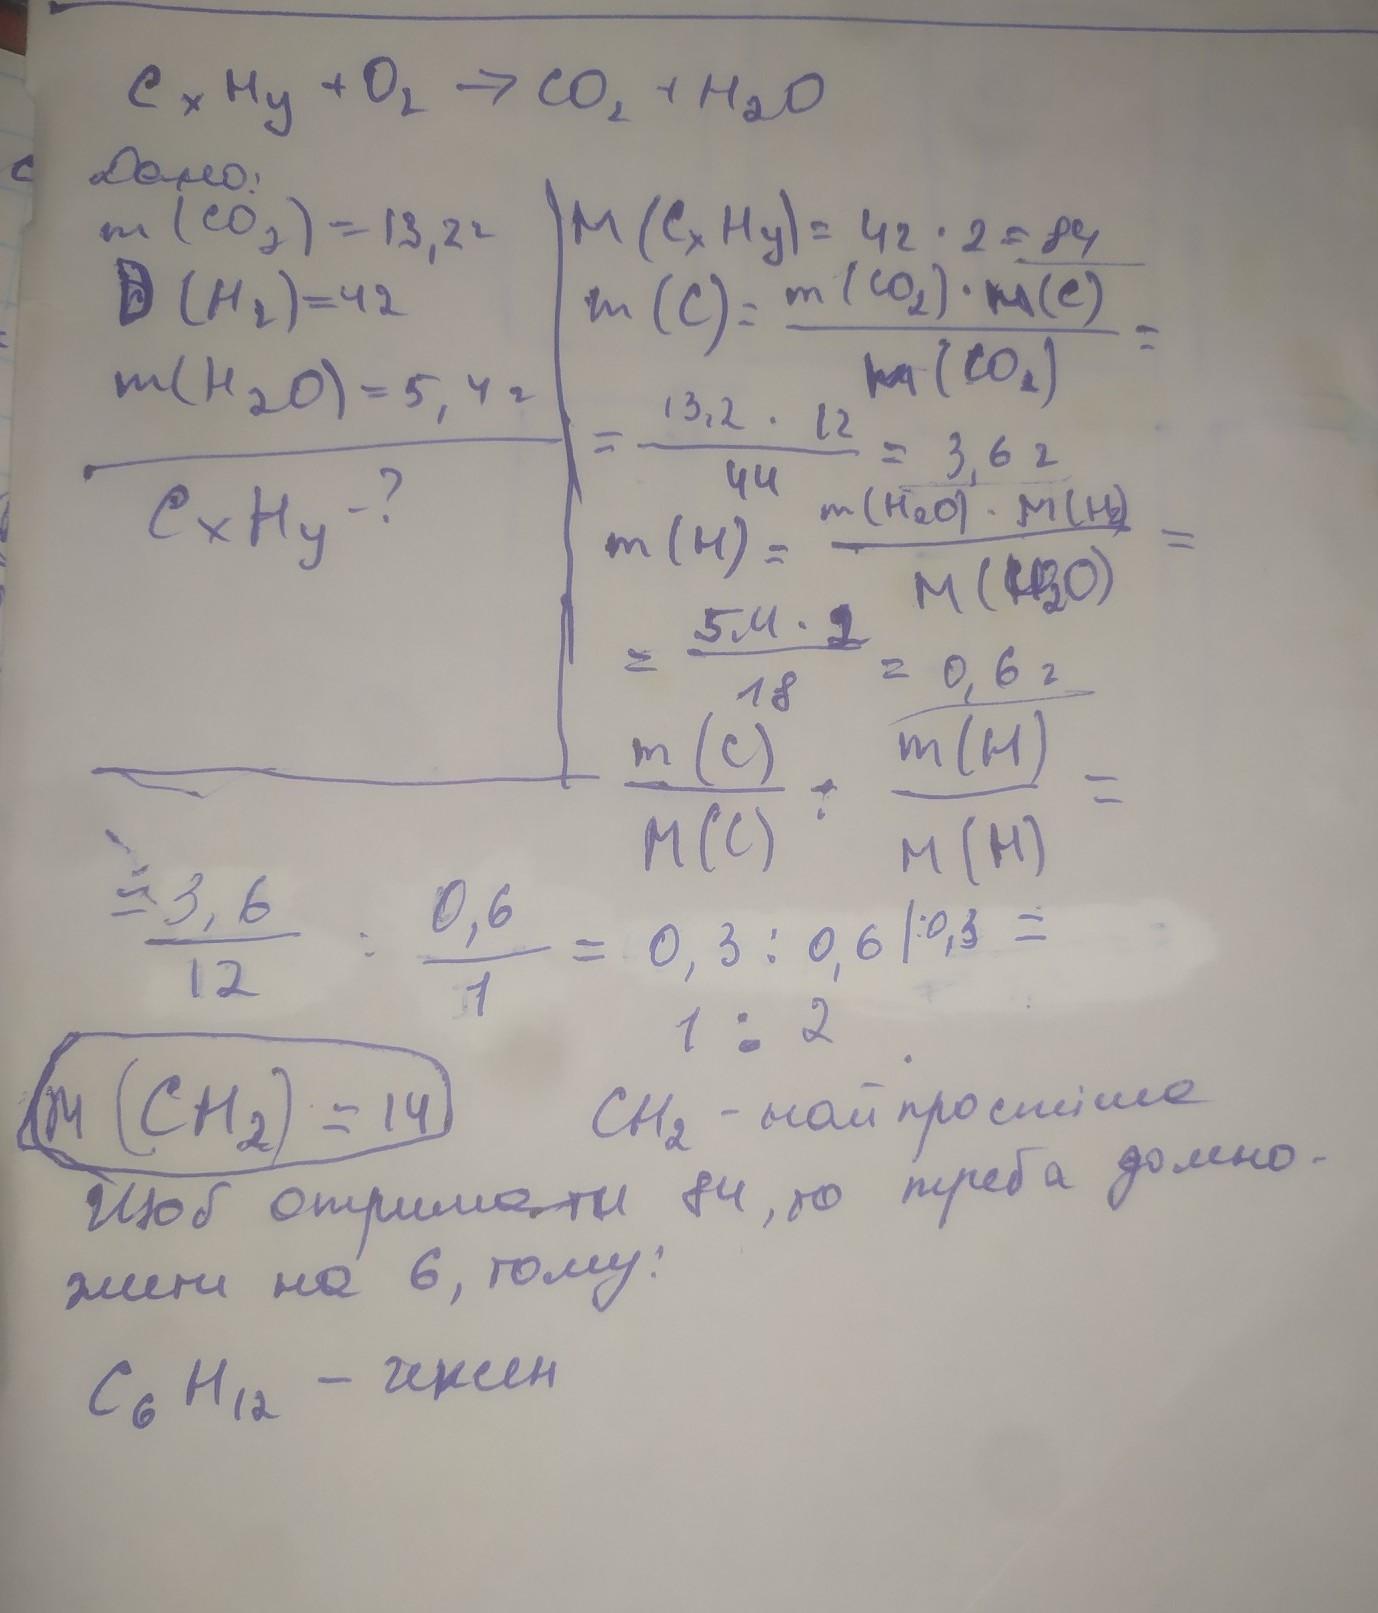 CxHy + O₂ → CO₂ + H₂O
Дано:
m(CO₂) = 13,2г
D(H₂) = 42
m(H₂O) = 5,4г
CxHy - ?
M(CxHy) = 42 · 2 = 84
m(C) = m(CO₂) · M(C) / M(CO₂) =
= 13,2 · 12 / 44 = 3,6 г
m(H) = m(H₂O) · M(H₂) / M(H₂O) =
= 5,4 · 2 / 18 = 0,6 г
m(C) / M(C) : m(H) / M(H) =
= 3,6 / 12 : 0,6 / 1 = 0,3 : 0,6 | :0,3 =
1 : 2
M(CH₂) = 14
CH₂ - найпростіша
Щоб отримати 84, то треба домно-
жити на 6, тому:
C₆H₁₂ - гексен